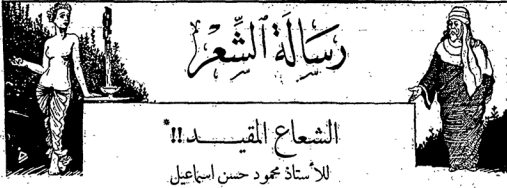 رسالة الشعر
الشعاع المقيد!!*
للأستاذ محمود حسن اسماعيل